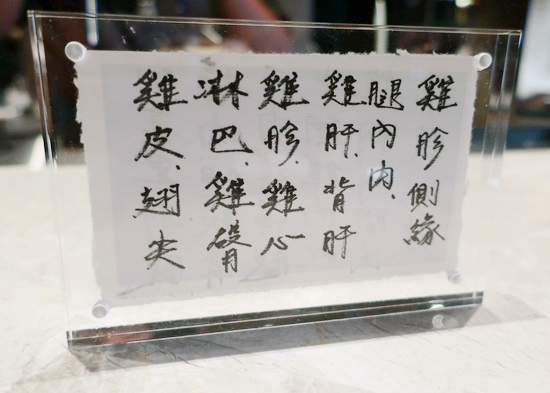 雞胗側緣
腿內肉、
雞肝、背肝
雞胗、雞心
淋巴、雞腎
雞皮、翅尖